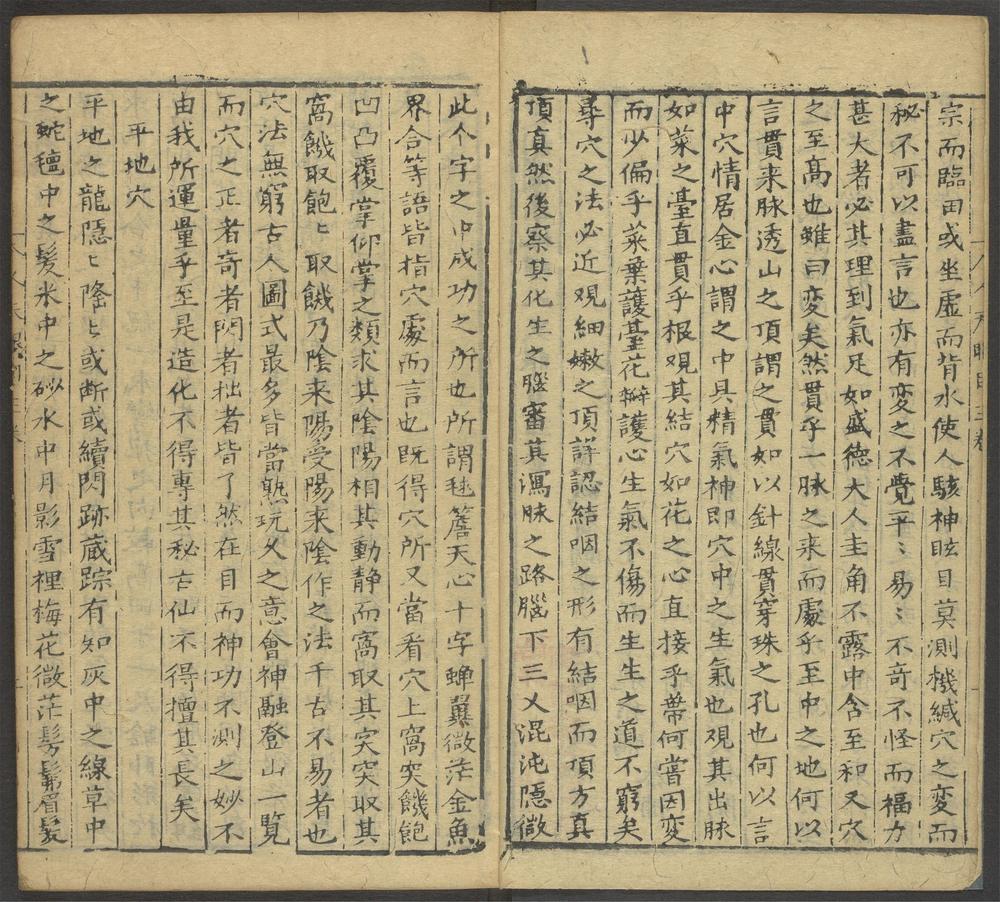 宗而臨田或坐虛而背水使人駭神眩目莫測機緘穴之変而
秘不可以盡言也亦有変之不覺平〻易〻不奇不怪而福力
甚大者必其理到氣足如盛德大人圭角不露中含至和又穴
之至高也雖曰変矣然貫乎一脉之来而處乎至中之地何以
言貫来脉透山之頂謂之貫如以針線貫穿珠之孔也何以言
中穴情居金心謂之中具精氣神即穴中之生氣也观其出脉
如菜之臺直貫乎根观其結穴如花之心直接乎蒂何嘗因变
而少偏乎菜葉護臺花瓣護心生氣不傷而生生之道不窮矣
尋穴之法必近观細嫩之頂詳認結咽之形有結咽而頂方真
頂真然後察其化生之腦審其瀉脉之路腦下三乂混沌隱微
此个字之中成功之所也所謂毬簷天心十字蝉翼微茫金魚
界合等語皆指穴處而言也既得穴所又當看穴上窩突饑飽
凹凸覆掌仰掌之類求其陰陽相其動静而窩取其突突取其
窩饑取飽〻取饑乃陰来陽受陽来陰作之法千古不易者也
穴法無窮古人圖式最多皆當熟玩久之意會神融登山一覧
而穴之正者奇者閃者拙者皆了然在目而神功不測之妙不
由我所運量乎至是造化不得專其秘古仙不得擅其長矣
平地穴
平地之龍隱〻隆〻或断或續閃跡蔵踪有如灰中之線草中
之蛇氊中之髮米中之砂水中月影雪裡梅花微茫髣髴眉髮